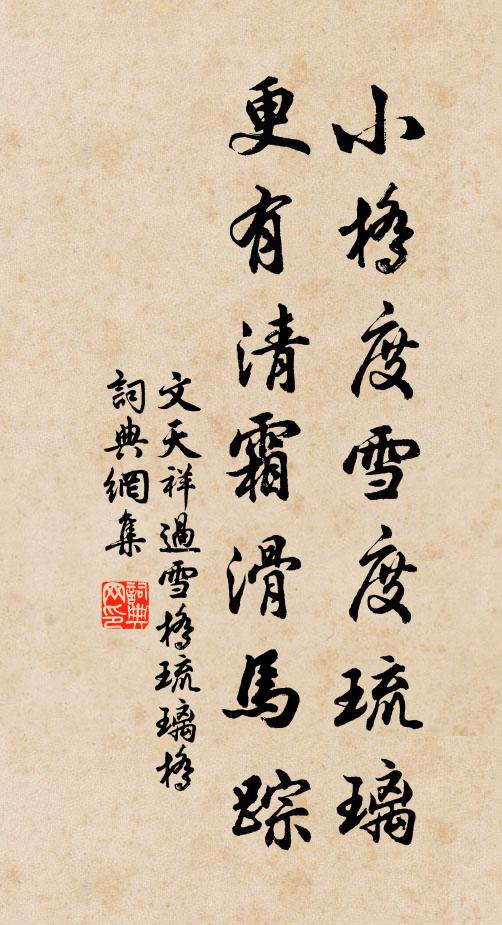 小橋度雪度琉璃
更有清霜滑馬蹤
文天祥過雪橋琉璃橋
詞典網集
詞典網印